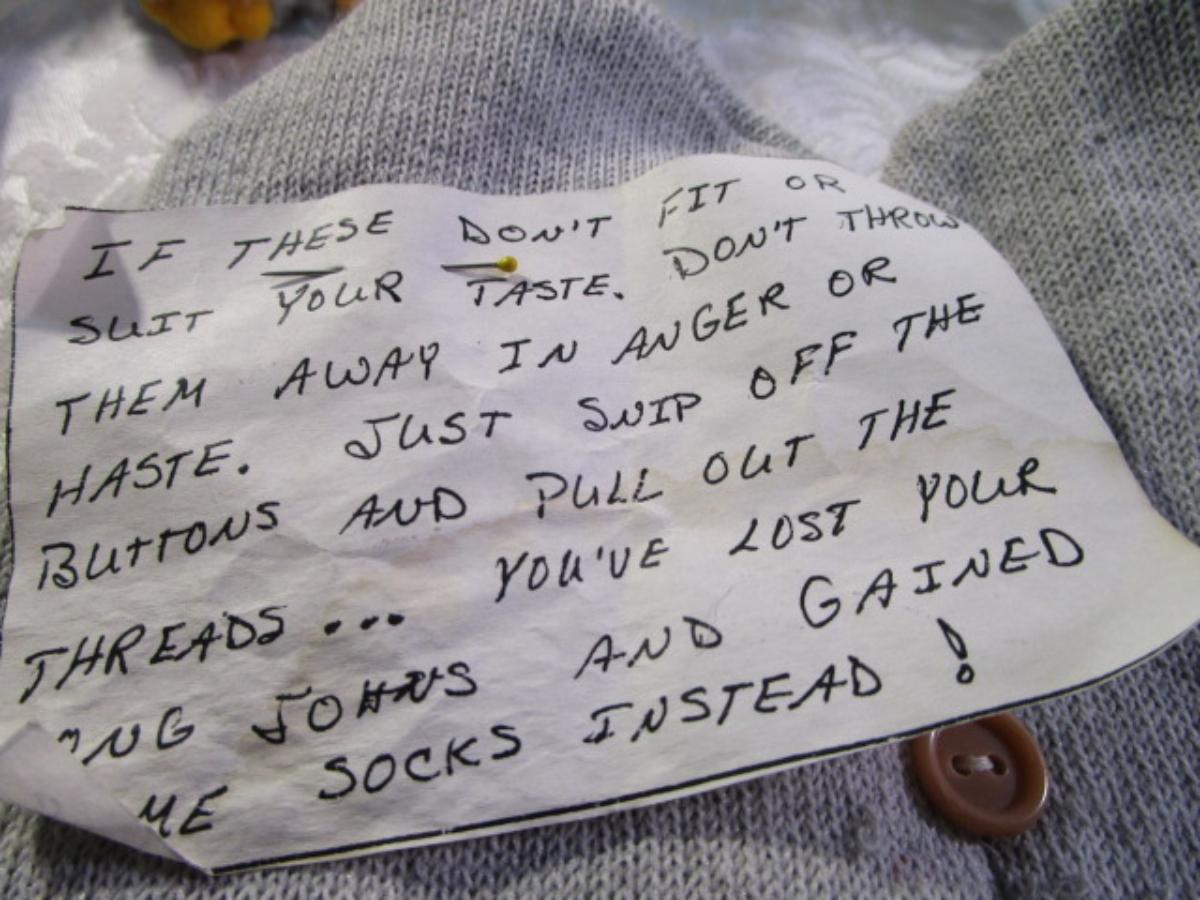 IF THESE DON'T FIT OR
SUIT YOUR TASTE. DON'T THROW
THEM AWAY IN ANGER OR
HASTE. JUST SNIP OFF THE
BUTTONS AND PULL OUT THE
THREADS... YOU'VE LOST YOUR
ONG JOHNS AND GAINED
ME SOCKS INSTEAD!